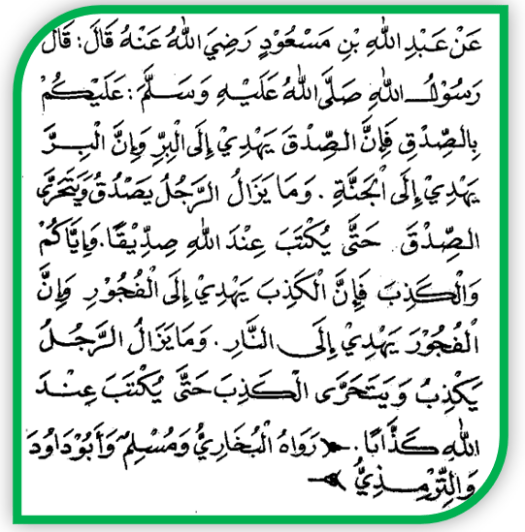 عَنْ عَبْدِ اللهِ بْنِ مَسْعُوْدٍ رَضِيَ اللهُ عَنْهُ قَالَ: قَالَ
رَسُوْلُ اللهِ صَلَّى اللهُ عَلَيْهِ وَسَلَّمَ: عَلَيْكُمْ
بِالصِّدْقِ فَإِنَّ الصِّدْقَ يَهْدِيْ إِلَى الْبِرِّ وَإِنَّ الْبِرَّ
يَهْدِيْ إِلَى الْجَنَّةِ. وَمَا يَزَالُ الرَّجُلُ يَصْدُقُ وَيَتَحَرَّى
الصِّدْقَ حَتَّى يُكْتَبَ عِنْدَ اللهِ صِدِّيْقًا. وَإِيَّاكُمْ
وَالْكَذِبَ فَإِنَّ الْكَذِبَ يَهْدِيْ إِلَى الْفُجُوْرِ وَإِنَّ
الْفُجُوْرَ يَهْدِيْ إِلَى النَّارِ. وَمَا يَزَالُ الرَّجُلُ
يَكْذِبُ وَيَتَحَرَّى الْكَذِبَ حَتَّى يُكْتَبَ عِنْدَ
اللهِ كَذَّابًا. رَوَاهُ الْبُخَارِيُّ وَمُسْلِمٌ وَأَبُوْ دَاوُدَ
وَالتِّرْمِذِيُّ